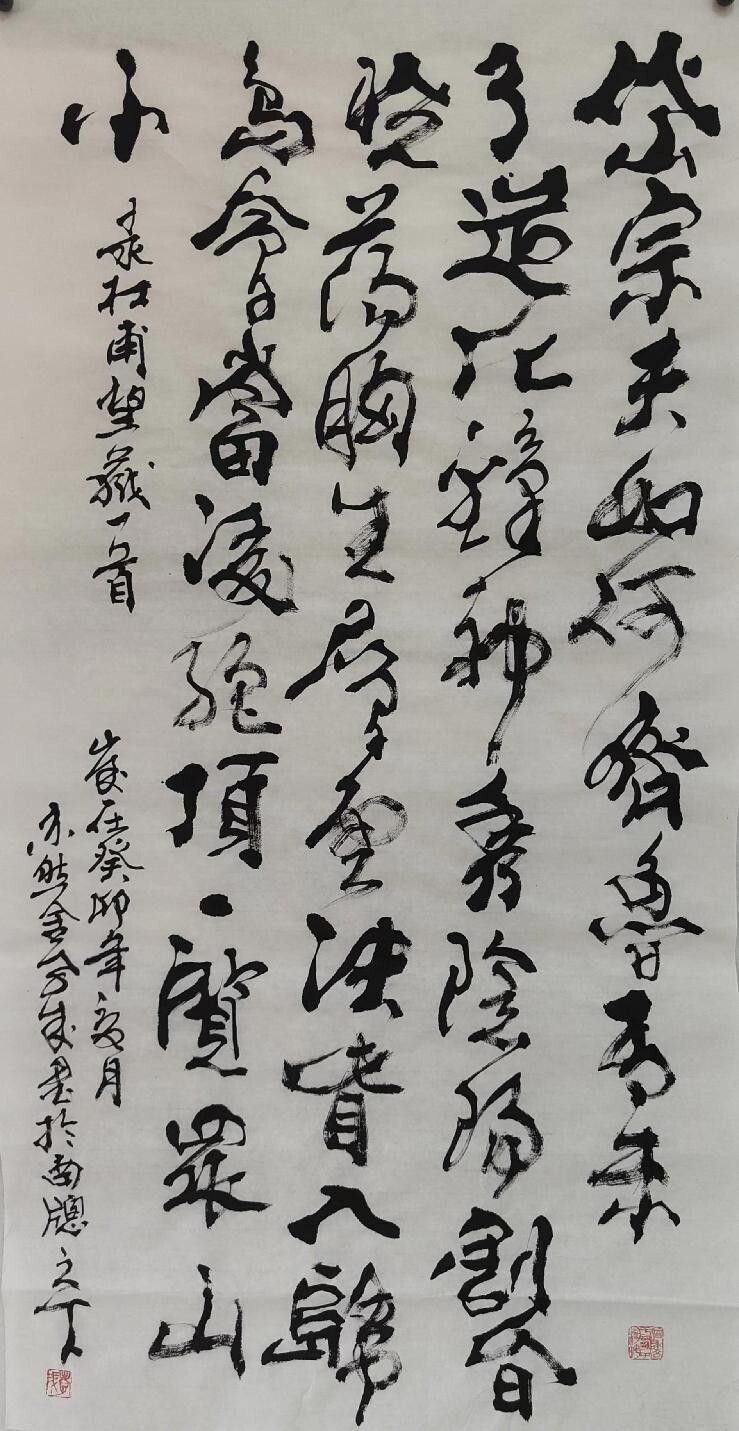 岱宗夫如何齊魯青未
了造化鍾神秀陰陽割昏
曉蕩胸生層雲決眥入歸
鳥會當淩絕頂一覽眾山
小
录杜甫望嶽一首
歲在癸卯年亥月
亦然書於南牕之下